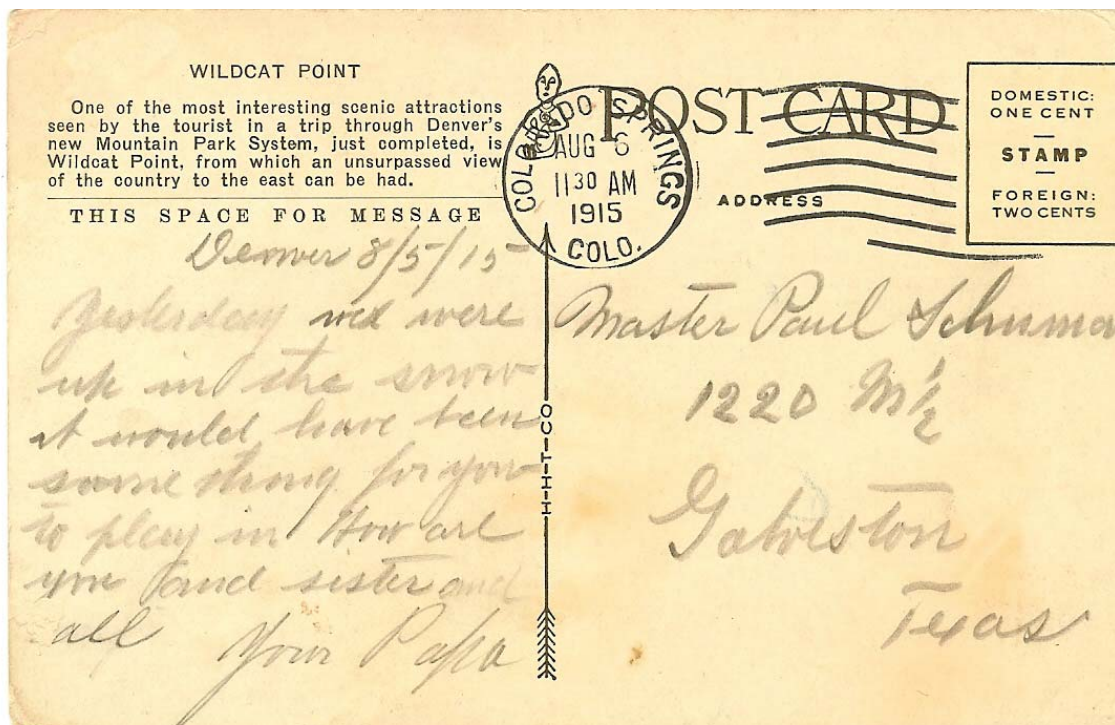 WILDCAT POINT
One of the most interesting scenic attractions
seen by the tourist in a trip through Denver's
new Mountain Park System, just completed, is
Wildcat Point, from which an unsurpassed view
of the country to the east can be had.
THIS SPACE FOR MESSAGE
Denver 8/5/15
Yesterday we were
up in the snow
it would have been
some thing for you
to play in How are
you and sister and
all
Your Papa
H-H-T-CO
POST CARD
ADDRESS
COLORADO SPRINGS
AUG 6
11 30 AM
1915
COLO.
DOMESTIC:
ONE CENT
STAMP
FOREIGN:
TWO CENTS
Master Paul
1220 M½
Galveston
Texas